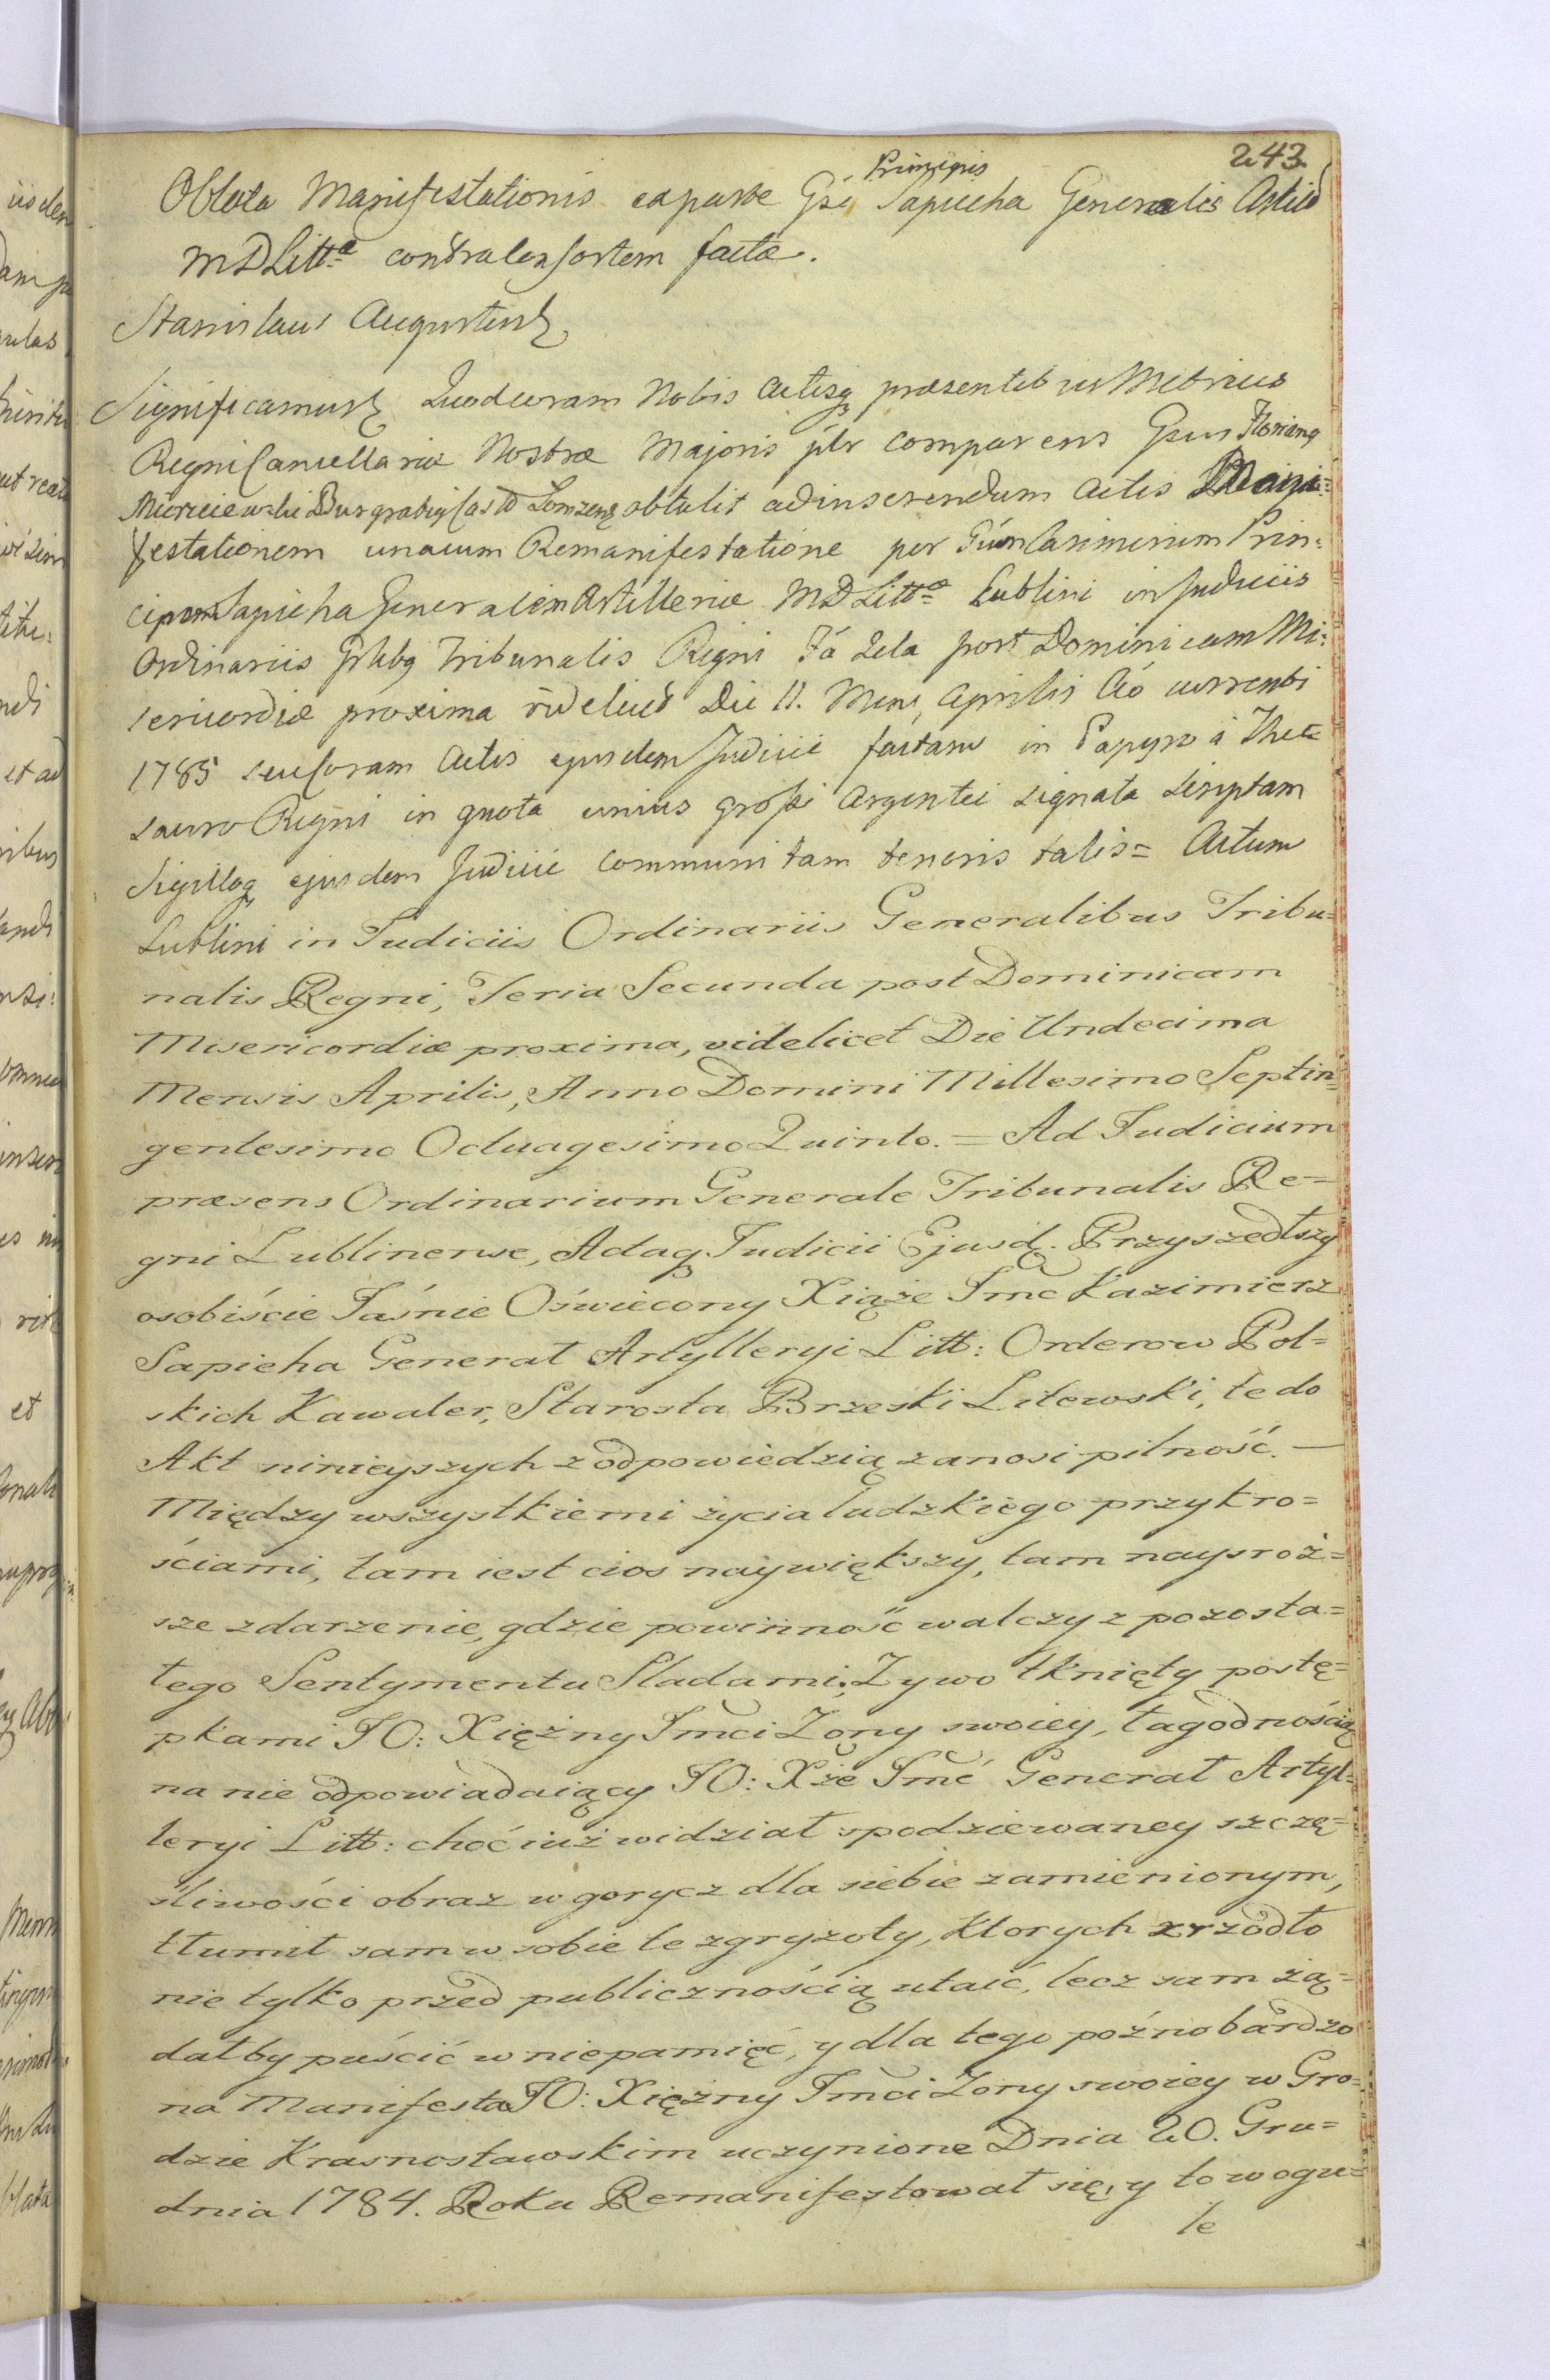 243
Principis
Oblata Manifestationis exparte Gsi Sapieha Generalis Artil
MDLittæ contra Consortem factæ.
Stanislaus Augustus
Significamus Quod coram Nobis Actisq præsentibus Metrices
Regni Cancellariæ Nostræ Majoris plr comparens Gsus Florianq
Burgrabiq Cas Lomzenq obtulit ad inserendum Actis Mani=
festationem unacum Remanifestatione per Casimirum Prin=
cipem Sapieha Generalem Artilleriæ MDLittæ Lublini in Judiciis
Ordinariis Grlbq Tribunalis Regni Fa 2da post Dominicam Mi=
sericordiæ proxima videlicet Die 11. Mens Aprilis Ao currenti
1785 seu coram Actis ejusdem Judicii factam in Papyro à The=
sauro Regni in quota unius grossi Argentei signata scriptam
Sigilloq ejusdem Judicii communitam tenoris talis = Actum
Lublini in Judiciis Ordinariis Generalibus Tribu=
nalis Regni, Feria Secunda post Dominicam
Misericordiæ proxima, videlicet Die Undecima
Mensis Aprilis, Anno Domini Millesimo Septin=
gentesimo Octuagesimo Quinto. = Ad Judicium
præsens Ordinarium Generale Tribunalis Re=
gni Lublinense, Actaq Judicii Ejusd. Przyszedłszy
osobiście Jaśnie Oświecony Xiąże Jmć Kazimierz
Sapieha Generał Artylleryi Litt: Orderow Pol=
skich Kawaler, Starosta Brzeski Litewski, te do
Akt ninieyszych z odpowiedzią zanosi pilność. —
Między wszystkiemi życia ludzkiego przykro=
ściami, tam iest cios naywiększy, tam naysroż=
sze zdarzenie, gdzie powinność walczy z pozosta=
łego Sentymentu Sladami; Zywo tknięty postę=
pkami JO: Xiężny Jmci Żony swoiey, łagodnością
na nie odpowiadaiący JO: Xże Jmć Generał Artyl=
leryi Litt: choć iuż widział spodziewaney szczę=
śliwości obraz w gorycz dla siebie zamienionym,
tłumił sam w sobie te zgryzoty, ktorych xrzodło
nie tylko przed publicznością utaić, lecz sam żą=
dałby puścić w niepamięć, y dla tego poźno bardzo
na Manifesta JO: Xiężny Jmci Żony swoiey w Gro=
dzie Krasnostawskim uczynione Dnia 20. Gru=
dnia 1784. Roku Remanifestował się, y to w ogu=
le